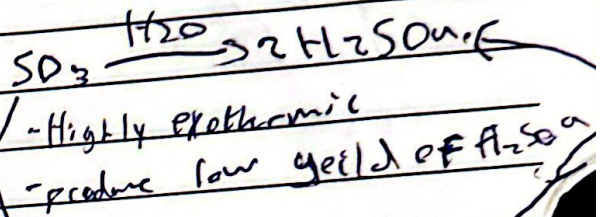 H2O
SO3 → 2H2SO4.
-Highly exothermic
-produce low yeild of H2SO4